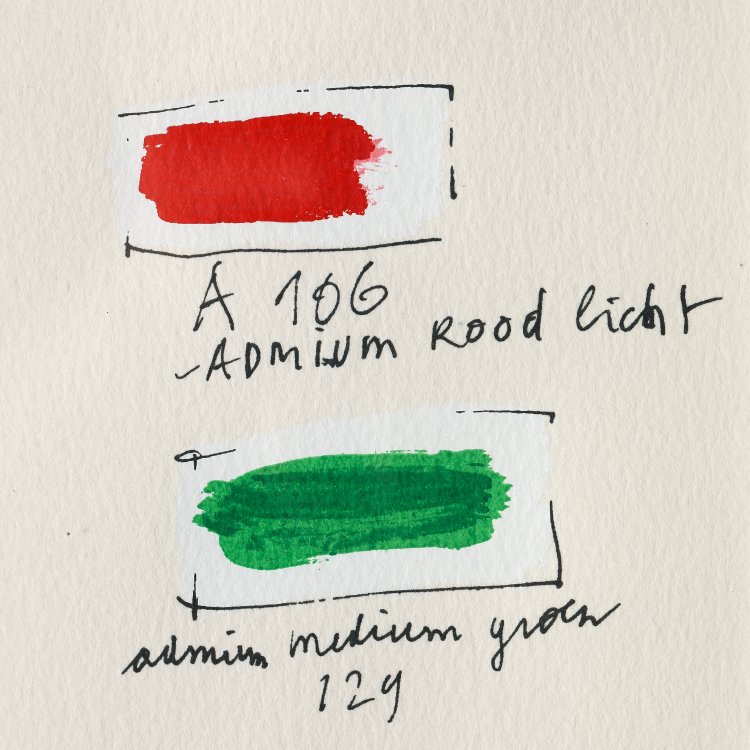 A 106
-ADMIUM ROOD licht
admium medium groen
129